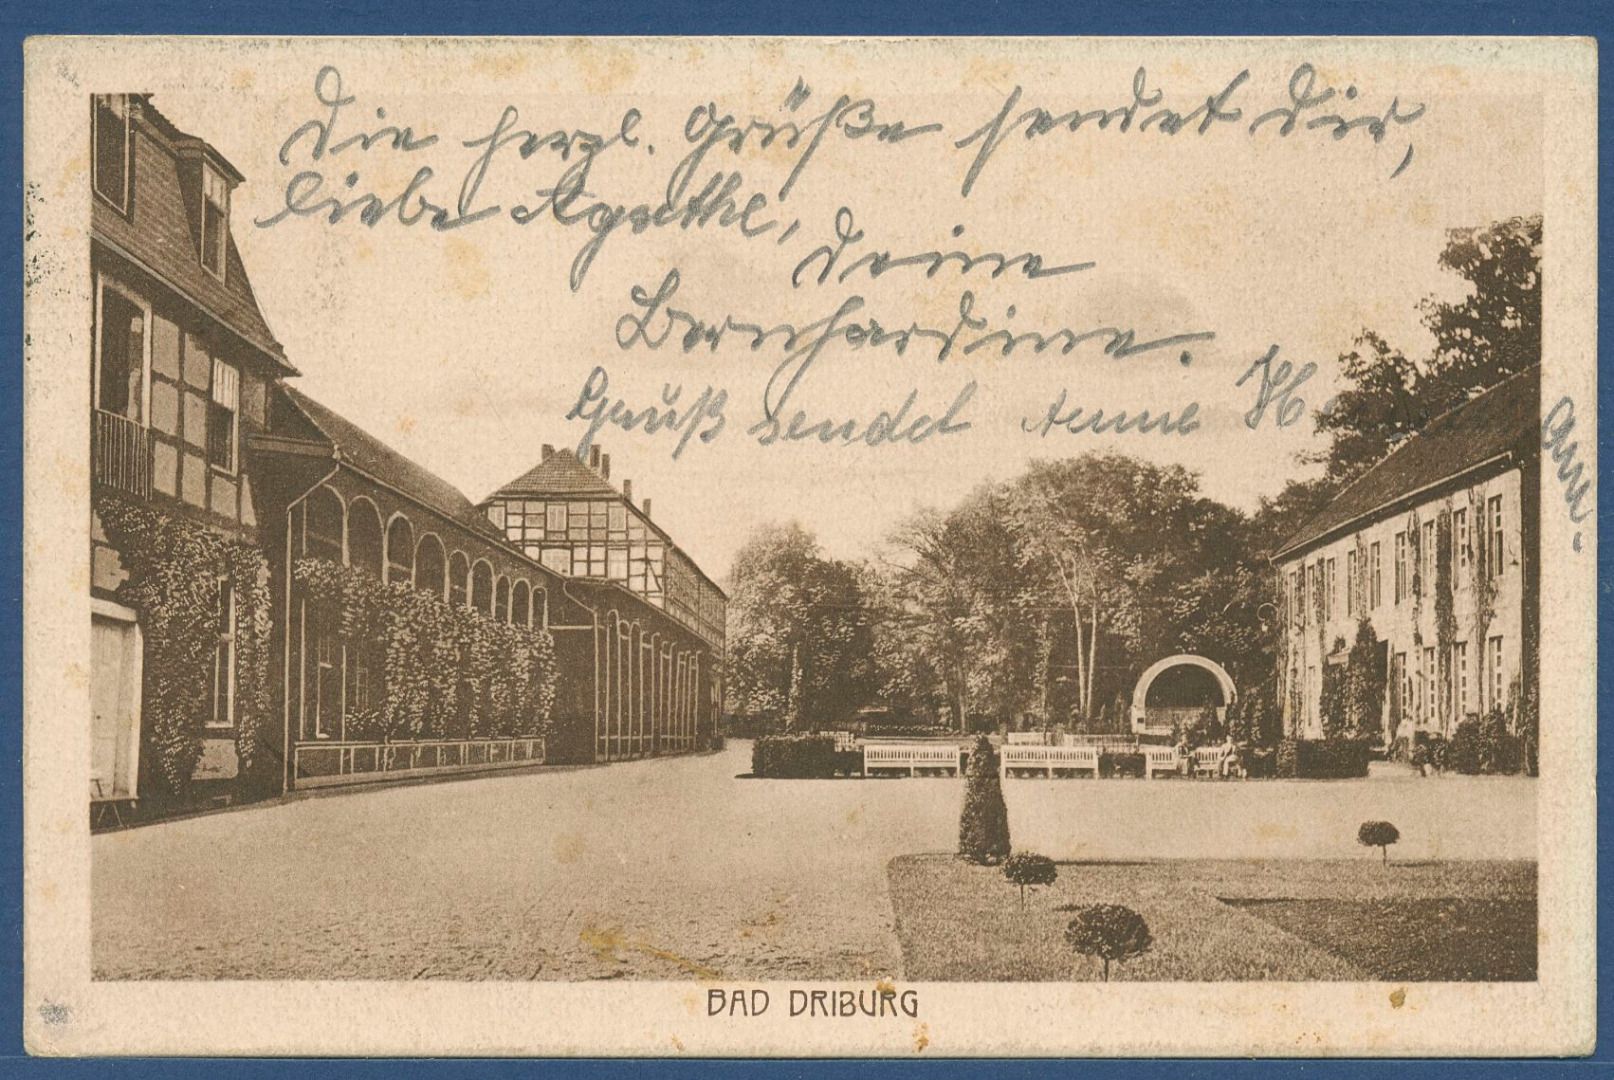 Die herzl. Grüße sendet Dir,
liebe Agathe,
Deine
Bernhardine.
Gruß sendet Aenne H
BAD DRIBURG